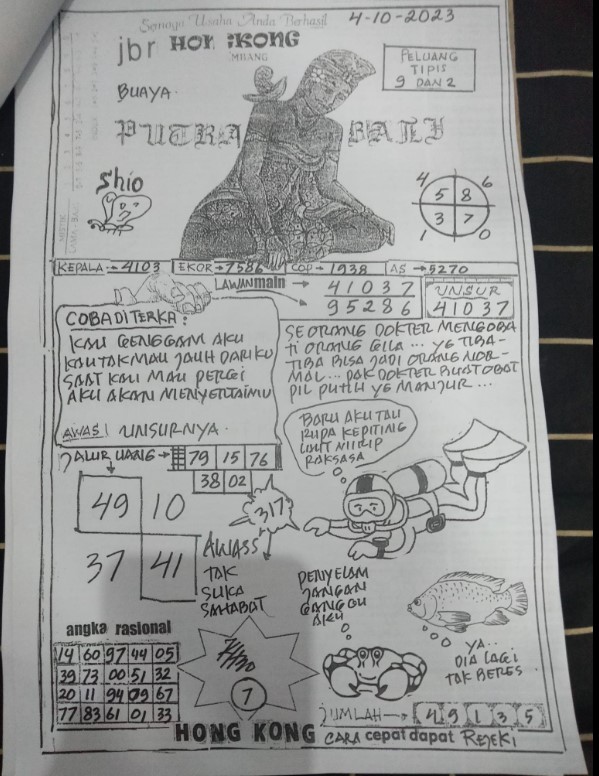 Semoga Usaha Anda Berhasil
4-10-2023
jbr HONGKONG
PELUANG
TIPIS
9 DAN 2
BUAYA
PUTRA BALI
Shio
4 6
5 8
3 7
1 0
KEPALA → 4103 EKOR → 7586 COP → 1938 AS → 5270
LAWAN main →
41037
95286
UNSUR
41037
COBA DITERKA :
KAU GENGGAM AKU
KAU TAK MAU JAUH DARIKU
SAAT KAU MAU PERGI
AKU AKAN MENYERTAIMU
AWAS! UNSURNYA.
SEORANG DOKTER MENGOBA
TI ORANG GILA ... YG TIBA-
TIBA BISA JADI ORANG NOR-
MAL ... PAK DOKTER BUAT OBAT
PIL PUTIH YG MANJUR ...
JALUR UANG → 79 15 76
38 02
BARU AKU TAU
RUPA KEPITING
RAKSASA
49 10
37 41
317
AWASS
TAK
SUKA
SAHABAT
PENYELAM
JANGAN
GANGGU
AKU
YA..
DIA LAGI
TAK BERES
angka rasional
14 60 97 44 05
39 73 00 51 32
20 11 94 09 67
77 83 61 01 33
7
JUMLAH → 4 9 1 3 5
HONG KONG CARA cepat dapat REJEKI